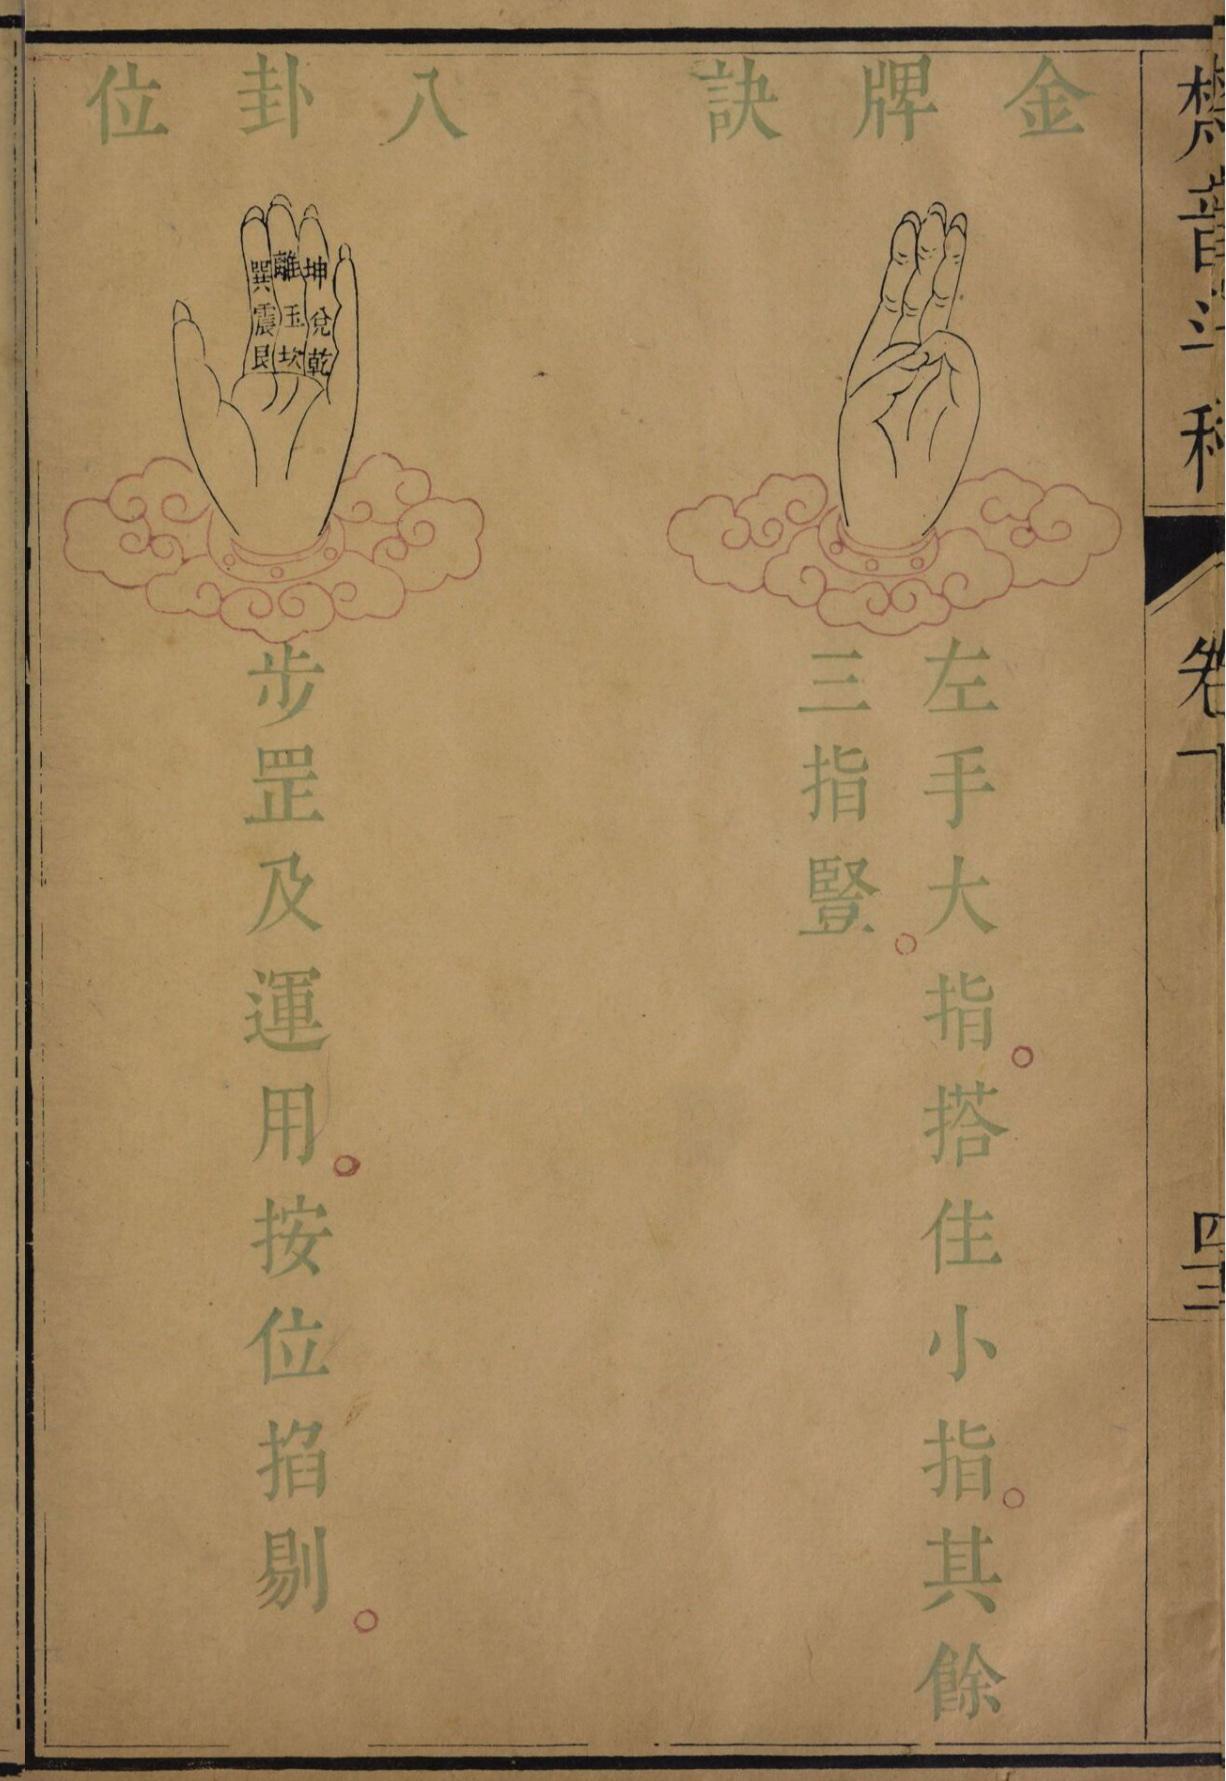 梵音斗科
卷下
金牌訣
左手大指。搭住小指。其餘
三指豎。
八卦位
坤兌乾
離玉坎
巽震艮
步罡及運用。按位掐剔。